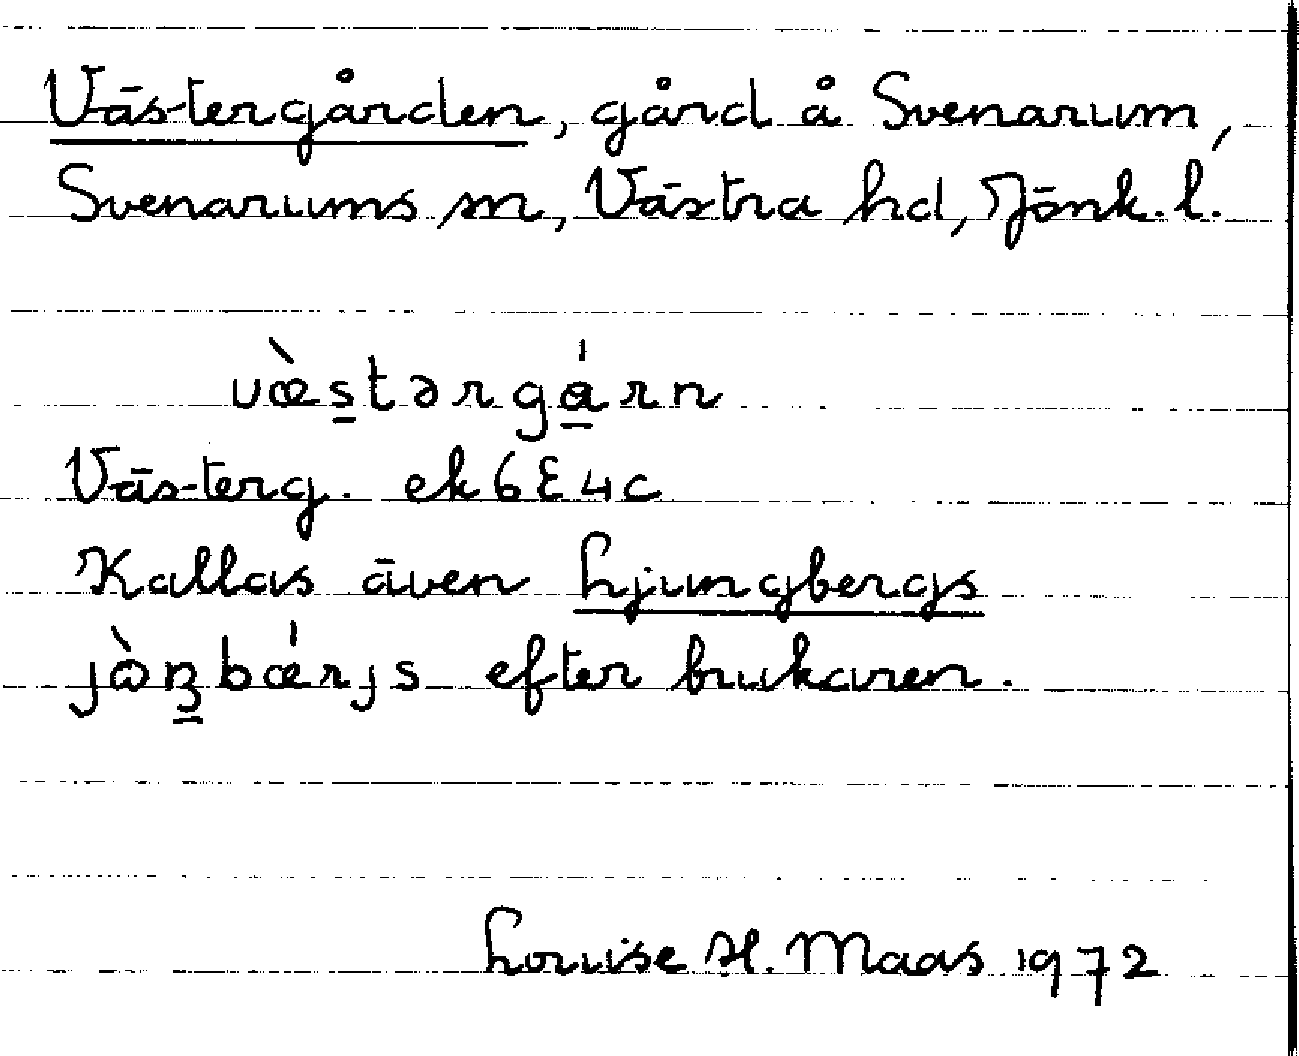 Västergården, gård å Svenarum,
Svenarums sn, Västra hd, Jönk. l.
væ̀s̲tərgá̲rn
Västerg. ek 6E4c
Kallas även Ljungbergs
jɷ̀ŋ̲bǽrjs efter brukaren.
Louise H. Maas 1972